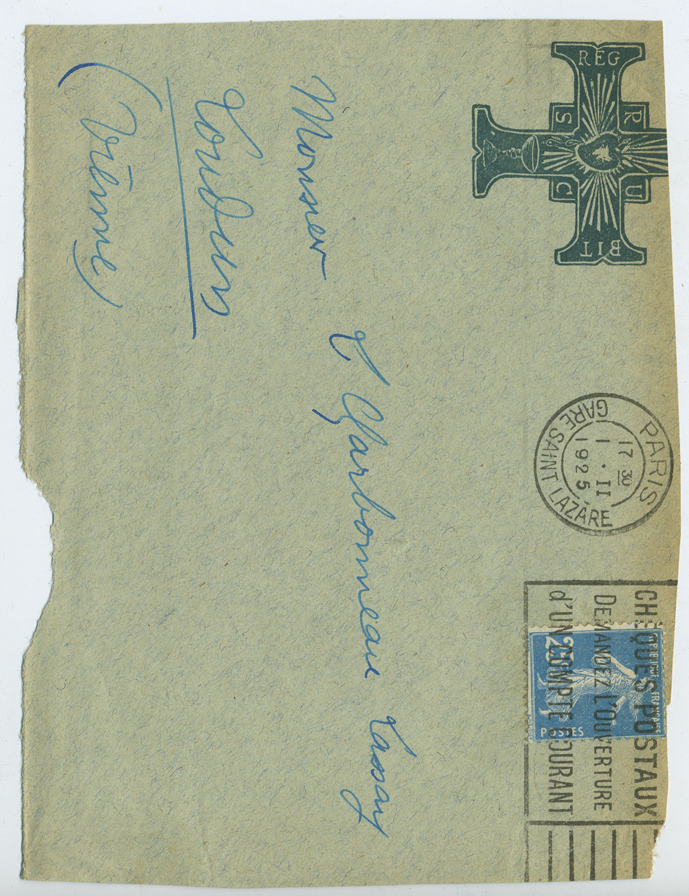 REG
S R
C U
BIT
PARIS
17 30
1 · II
1925
GARE SAINT LAZARE
CHEQUES POSTAUX
DEMANDEZ L'OUVERTURE
d'UN COMPTE COURANT
25
POSTES
Monsieur
C Charbonneau Lassay
Loudun
(Vienne)